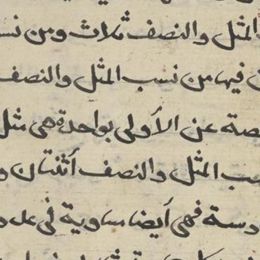 المثل والنصف ثلاث ومن نسـ
فيها من نسب المثل والنصف
ـصة عن الأولى بواحدة هى مثل
ـسب المثل والنصف أثنتان و
ـوسة فهى أيضا مساوية فى عد